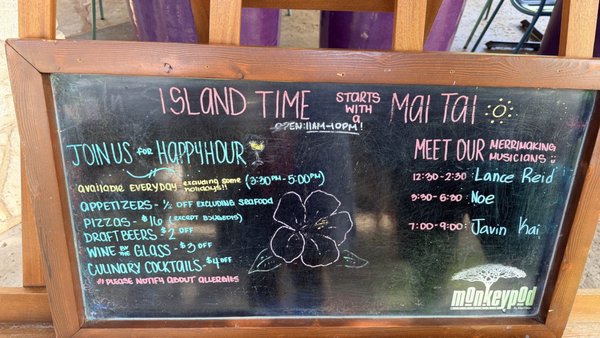 ISLAND TIME STARTS WITH A MAI TAI
OPEN: 11AM-10PM!
JOIN US for HAPPY HOUR
AVAILABLE EVERYDAY-excluding some holidays!!! (3:30PM-5:00PM)
APPETIZERS - ½ OFF EXCLUDING SEAFOOD
PIZZAS - $16 (EXCEPT
DRAFT BEERS $2 OFF
WINE BY THE GLASS - $3 OFF
CULINARY COCKTAILS - $4 OFF
PLEASE NOTIFY ABOUT ALLERGIES
MEET OUR MERRIMAKING MUSICIANS
12:30-2:30 : Lance Reid
3:30-6:30 : Noe
7:00-9:00 : Javin Kai
monkeypod